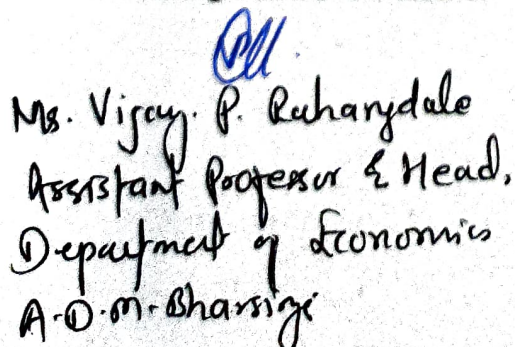 Ms. Vijay. P. Rahangdale
Assistant Professor & Head,
Department of Economics
A.D.M. Bharsingi